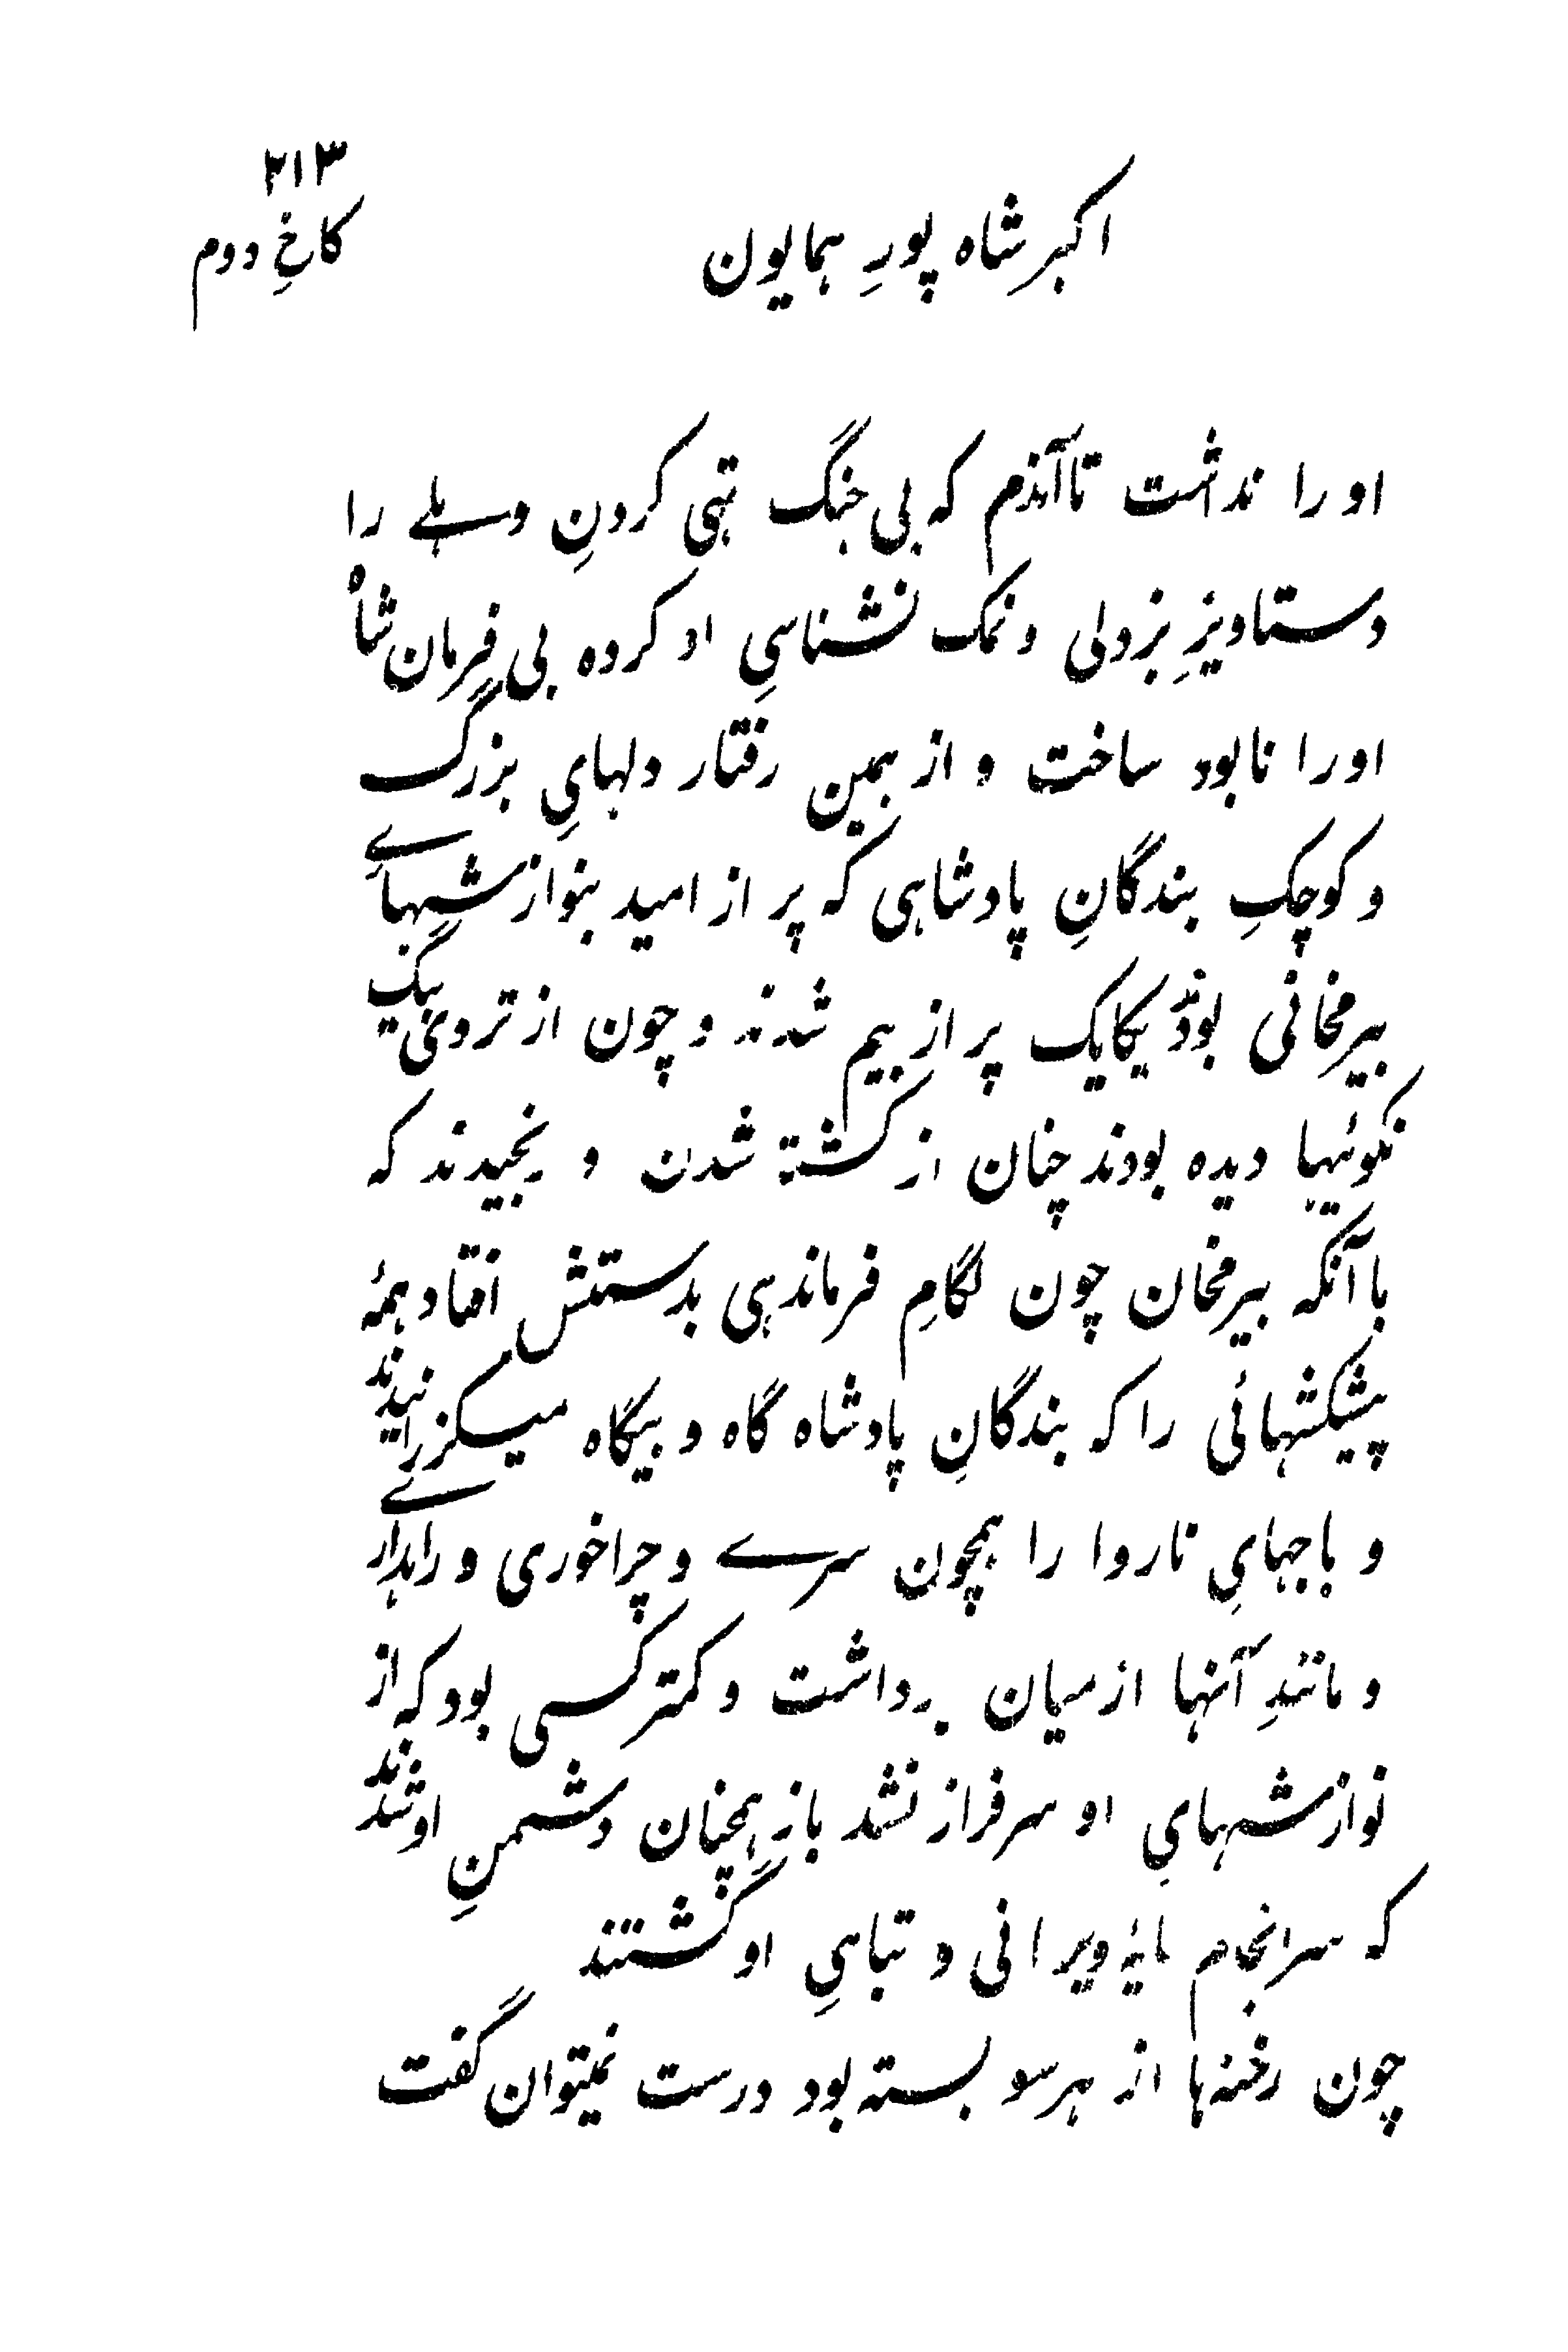 ۲۱۳
اکبر شاه پورِ همایون
کاخِ دوم
او را نداشت تا آندم که بی جنگ تهی کردنِ دهلے را
دستاویزِ بزدلی و نمک نشناسیِ او کرده بی فرمان شاه
او را نابود ساخت و از همین رفتار دلهایِ بزرگ
و کوچکِ بندگانِ پادشاهی که پر از امید بنوازشهاے
بیرمخانی بودند یکایک پر از بیم شدند و چون از تردی بیگ
نکوئیها دیده بودند چنان از کشته شدن و رنجیدند که
با آنکه بیرمخان چون لگامِ فرماندهی بدستش افتاد همهٔ
پیشکشهائی را که بندگانِ پادشاه گاه و بیگاه میگزرانیدند
و باجهایِ ناروا را همچون سرے و چراخوری و راهدارے
و مانندِ آنها از میان برداشت و کمتر کسی بود که از
نوازشهایِ او سرفراز نشد باز همچنان دشمنِ او شدند
که سرانجام مایهٔ ویرانی و تباهیِ او گشتند
چون رخنهٔها از هر سو بسته بود درست نمیتوان گفت